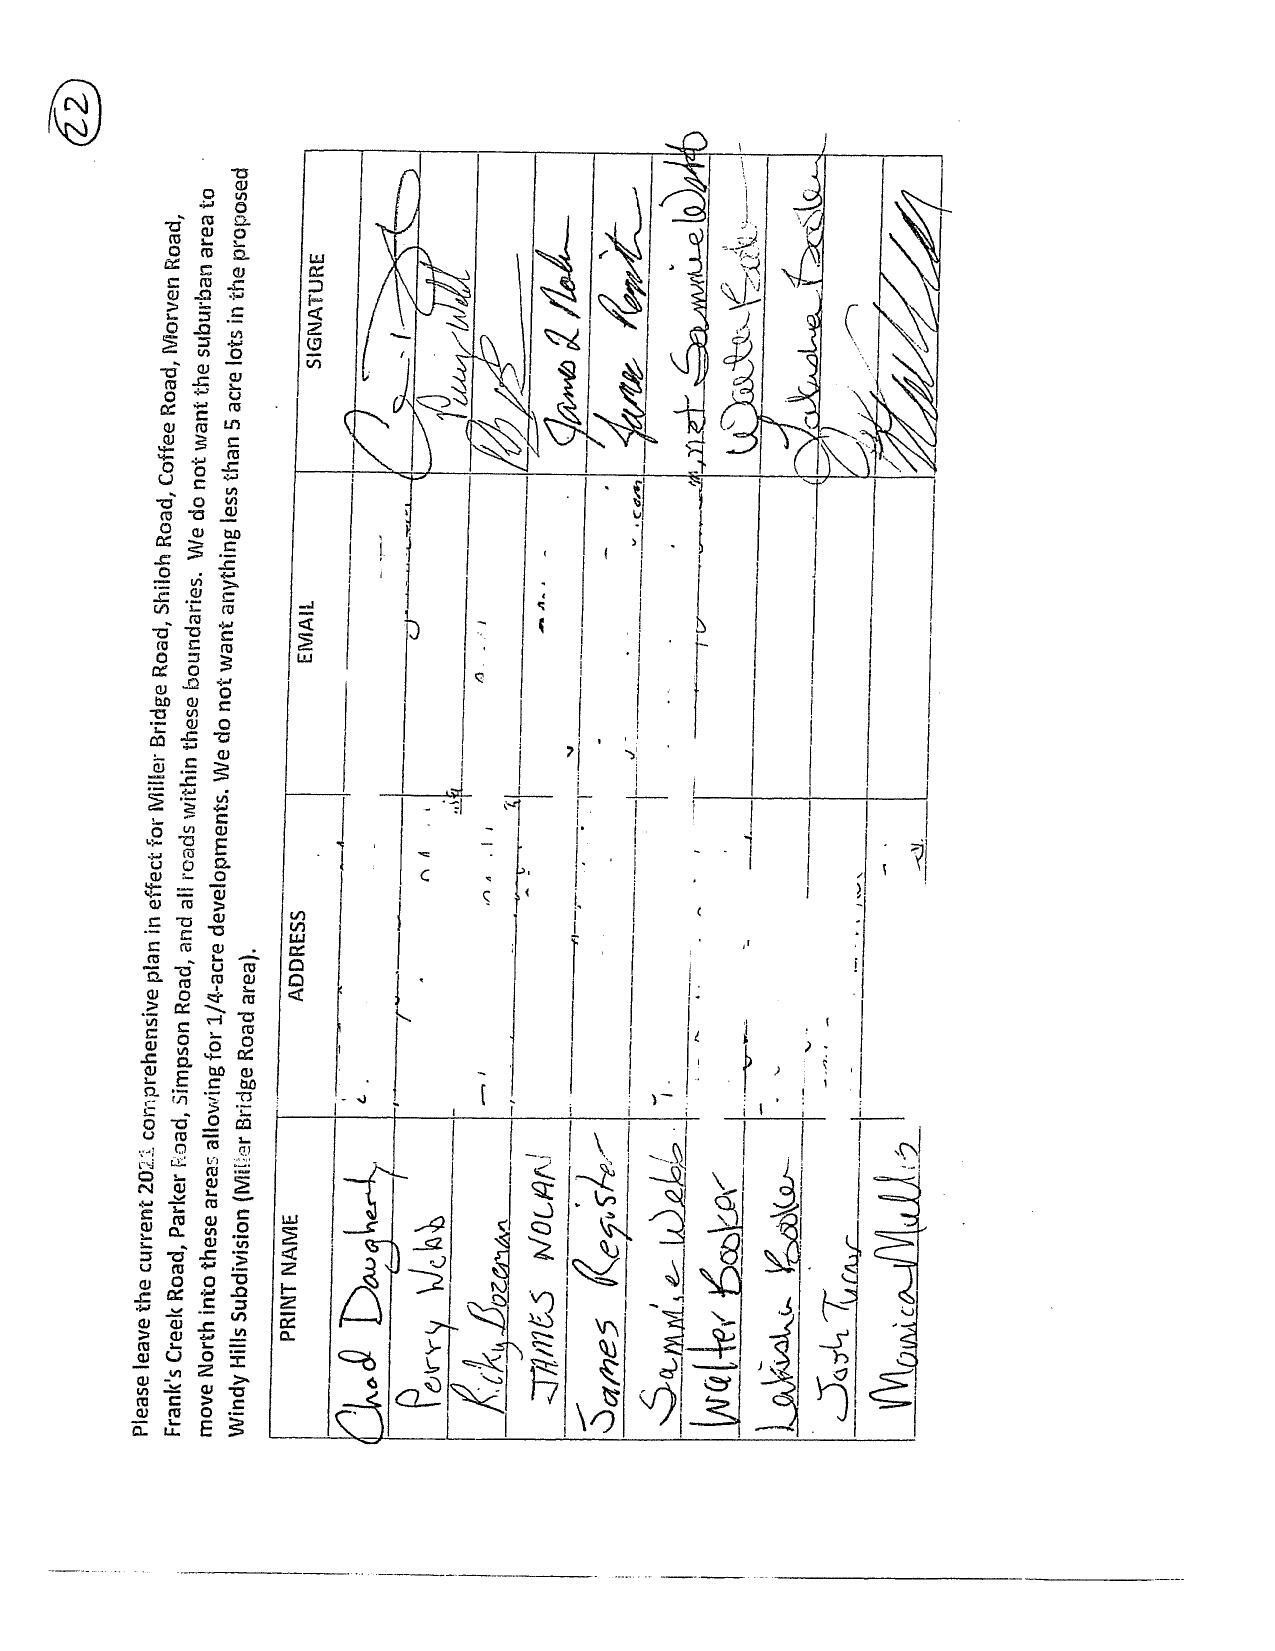 22
Please leave the current 2021 comprehensive plan in effect for Miller Bridge Road, Shiloh Road, Coffee Road, Morven Road,
Frank's Creek Road, Parker Road, Simpson Road, and all roads within these boundaries. We do not want the suburban area to
move North into these areas allowing for 1/4-acre developments. We do not want anything less than 5 acre lots in the proposed
Windy Hills Subdivision (Miller Bridge Road area).
PRINT NAME ADDRESS EMAIL SIGNATURE
Chad Daugherty
Perry Webb Perry Webb
Ricky Bozeman
JAMES NOLAN James
James Register .com
Sammie Webb Sammie Webb
Walter Booker Walter
Lakisha Booker Lakisha Booker
Josh
Monica Mullis